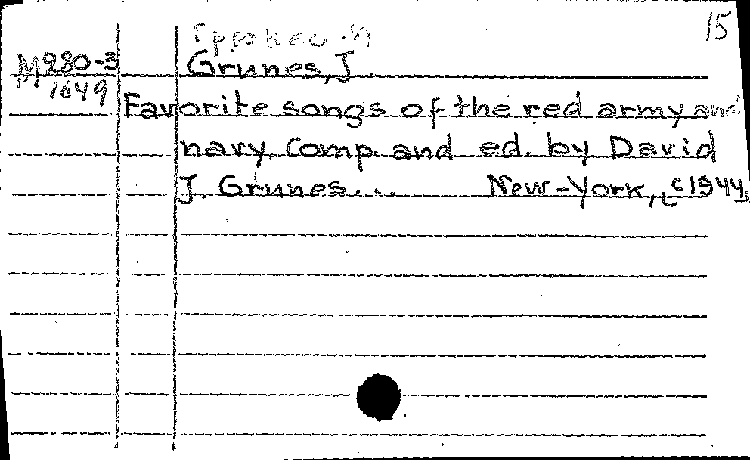 15
M980-3
1649
Grunes, J.
Favorite songs of the red army and
navy. Comp. and ed. by David
J. Grunes... New-York, [c1944]